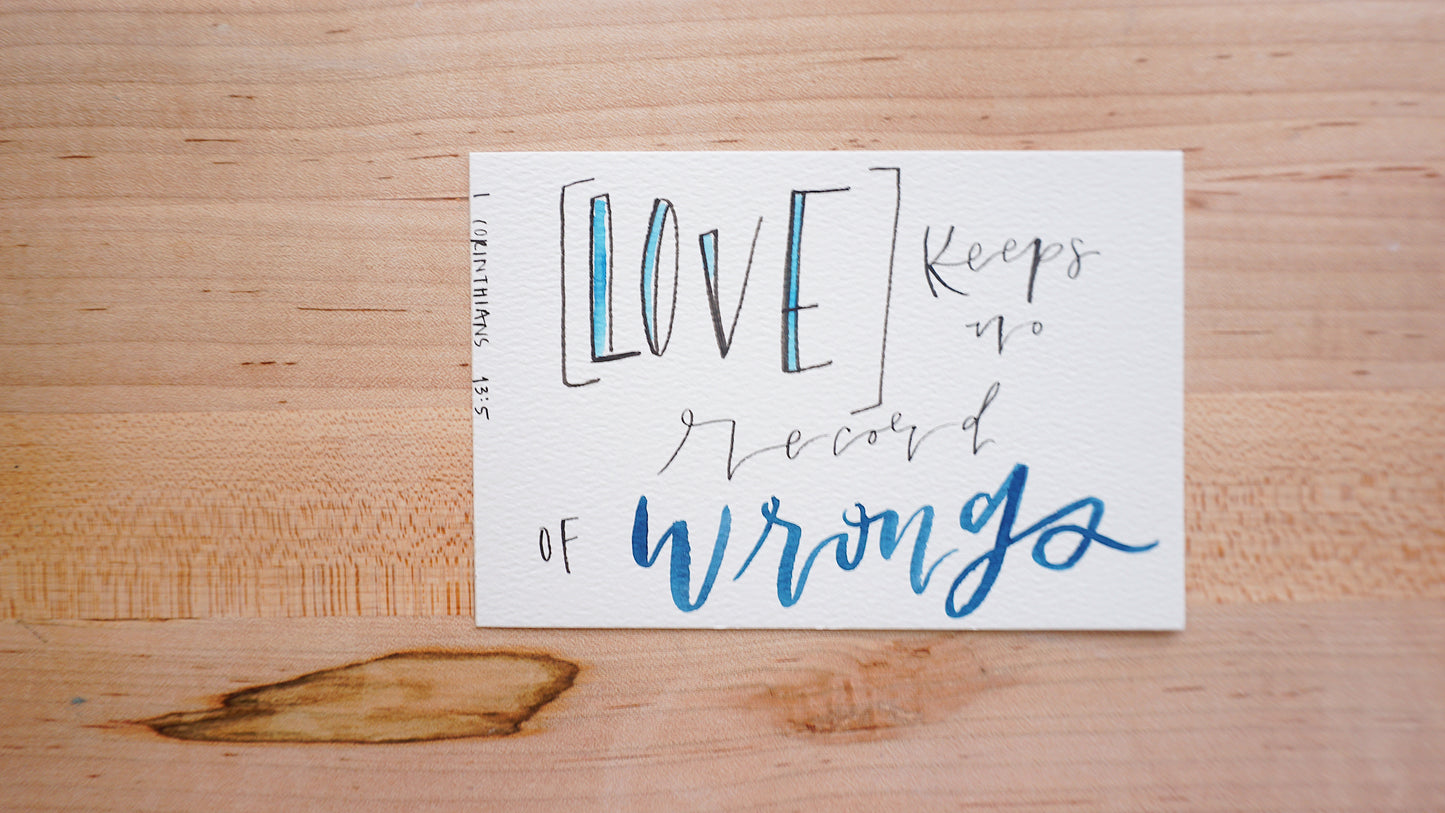 [LOVE] Keeps
no
record
OF wrongs
1 CORINTHIANS 13:5